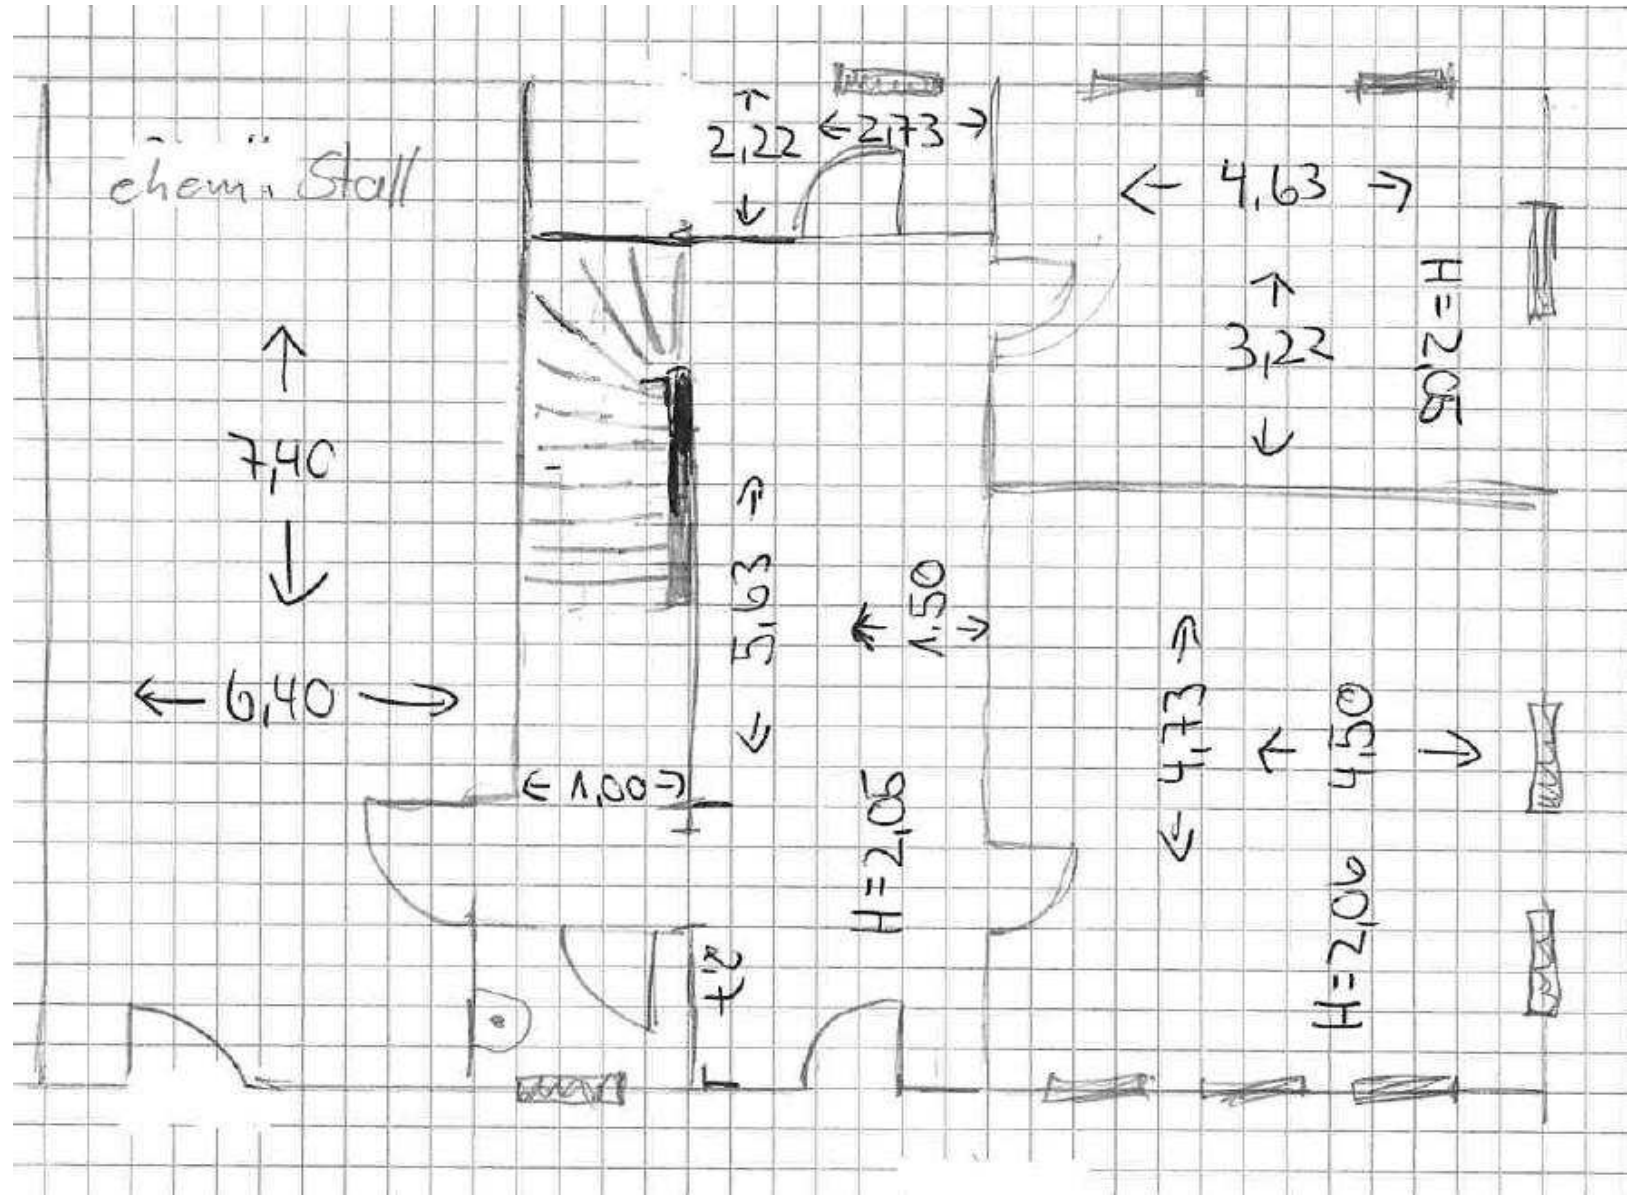 ehem. Stall
2,22
2,73
4,63
3,22
H=2,05
7,40
6,40
5,63
1.50
1,00
H=2,05
4,73
4,50
H=2,06